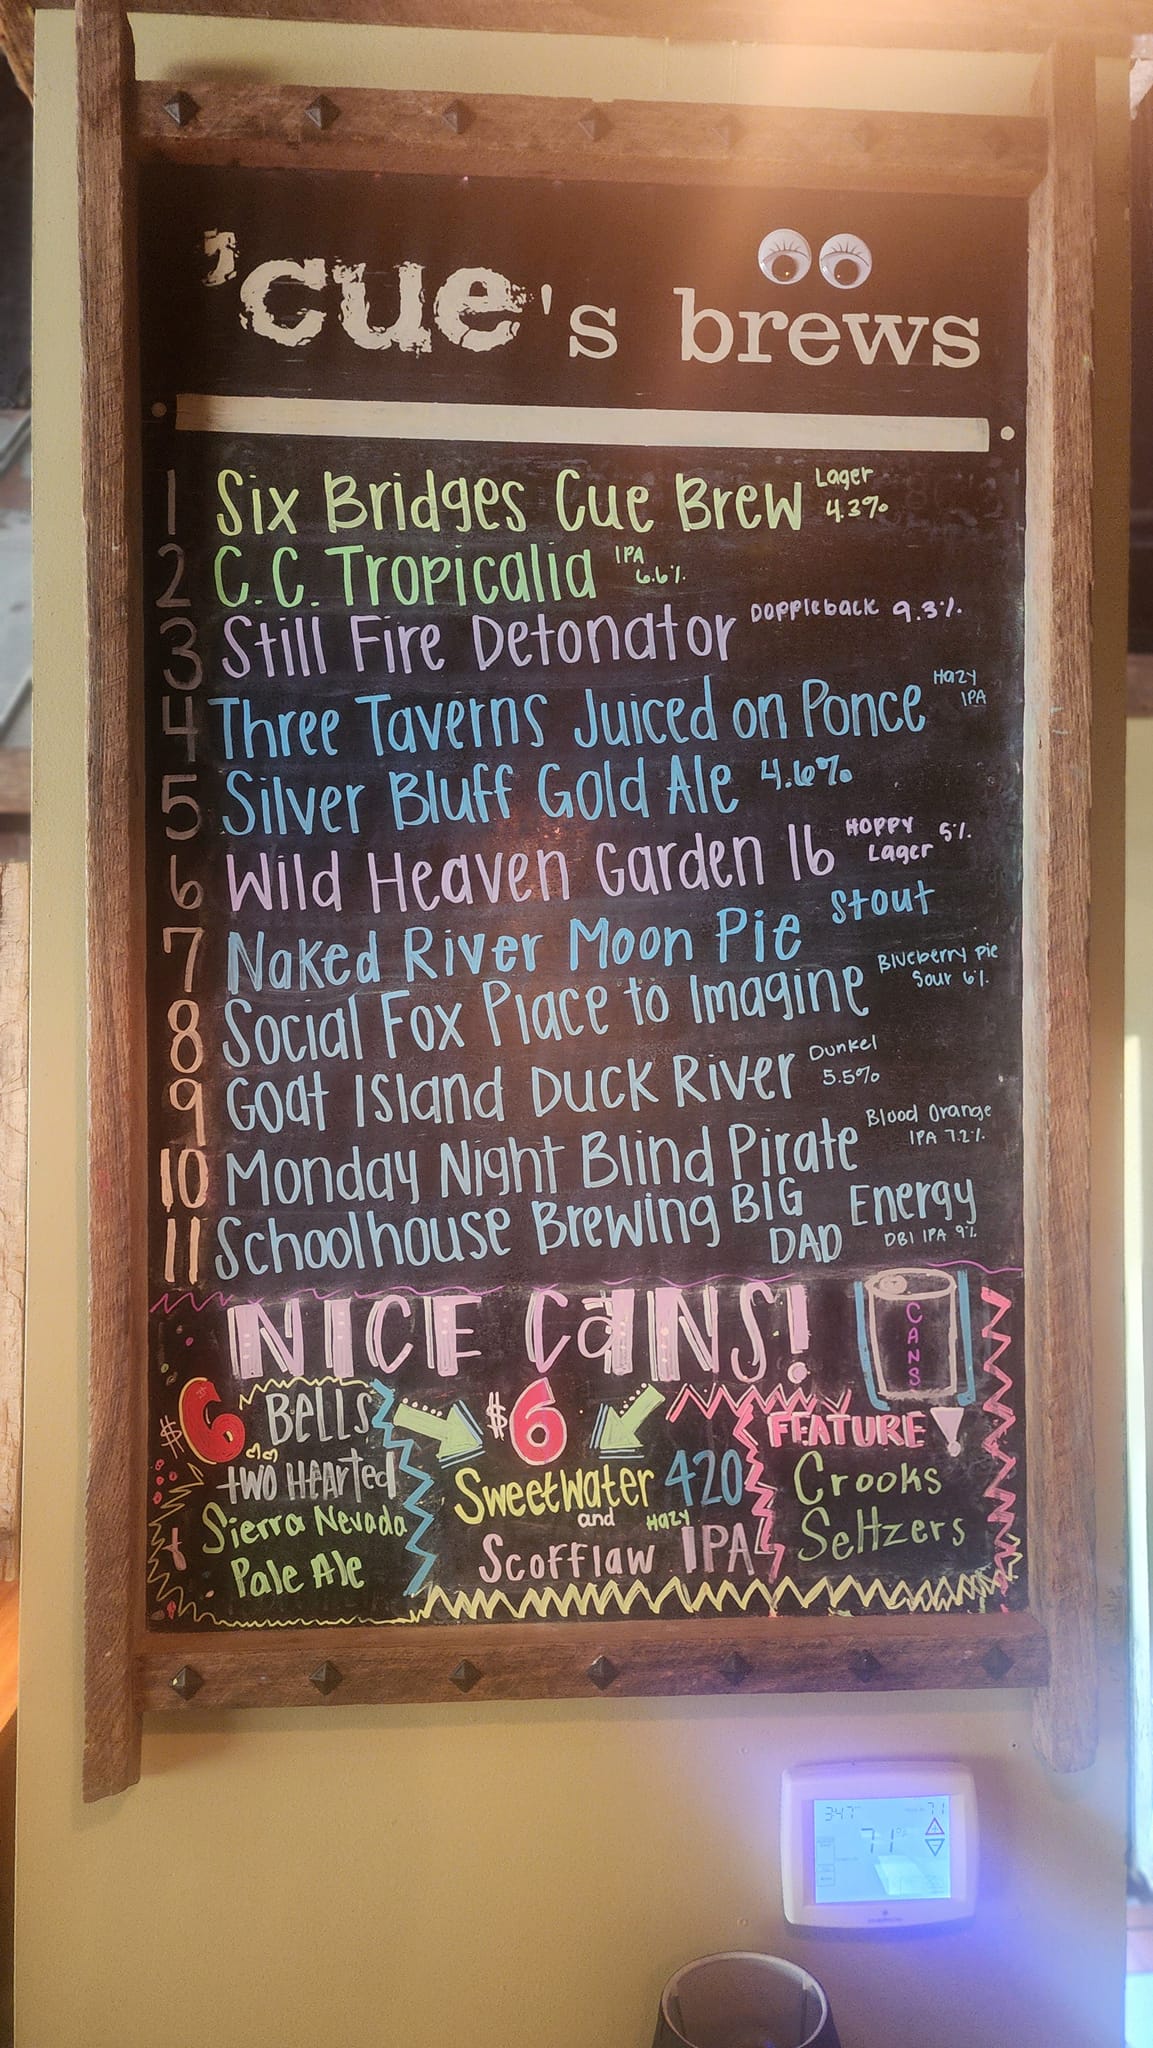 'cue's brews
1 Six Bridges Cue Brew Lager 4.3%
2 C.C. Tropicalia IPA 6.6%
3 Still Fire Detonator Doppleback 9.3%
4 Three Taverns Juiced on Ponce Hazy IPA
5 Silver Bluff Gold Ale 4.6%
6 Wild Heaven Garden 16 Hoppy Lager 5%
7 Naked River Moon Pie Stout
8 Social Fox Place to Imagine Blueberry Pie Sour 6%
9 Goat Island Duck River Dunkel 5.5%
10 Monday Night Blind Pirate Blood Orange IPA 7.2%
11 Schoolhouse Brewing BIG DAD Energy DBl IPA 9%
NICE CaNS!
CANS
$6 BELLS
two HEArted
+ Sierra Nevada
Pale Ale
$6
SweetWater 420
and
Scofflaw Hazy IPA
FEATURE!
Crooks
Seltzers
3:47
71
71°